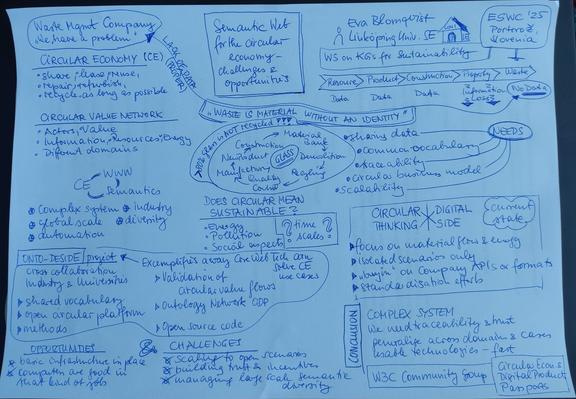 Waste Mgmt Company
„We have a problem"
LACK OF DATA
Semantic Web
for the circular
economy -
challenges &
opportunities
Eva Blomqvist
Linköping Univ. SE
ESWC '25
Portorož,
Slovenia
WS on KGs for Sustainability
CIRCULAR ECONOMY (CE)
• share, lease, reuse,
• repair, refurbish,
• recycle as long as possible
Resource
Product
Construction
Property
Waste
Data
Data
Data
Information
Losses
No Data
„WASTE IS MATERIAL WITHOUT AN IDENTITY"
CIRCULAR VALUE NETWORK
• Actors, Value
• Information, Resources, Energy
• Different domains
> 80% glass is NOT recycled ???
GLASS
Material
Bank
Demolition
Recycling
Quality
Control
Manufacturing
New product
Construction
NEEDS
• sharing data
• Common vocabulary
• traceability
• Circular business model
• Scalability
CE
WWW
Semantics
complex system
industry
global scale
diversity
automation
DOES CIRCULAR MEAN
SUSTAINABLE?
• Energy
• Pollution
• Social aspects
? time ?
scales
CIRCULAR
THINKING
DIGITAL
SIDE
Current
state
focus on material flow & energy
isolated scenarios only
on Company APIs or formats
standardisation efforts
ONTO-DESIDE project
cross collaboration
Industry & Universities
shared vocabulary
open circular platform
methods
Exemplifies a way Core Web Tech can
solve CE
use cases
Validation of
circular value flows
Ontology Network ODP
Open source code
CONCLUSION
COMPLEX SYSTEM
We need traceability & trust
generalize across domains & cases
Usable technologies - fast
W3C Community Group
Circular Econ &
Digital Product
Passports
OPPORTUNITIES
basic infrastructure in place
computer are good in
that kind of jobs
CHALLENGES
scaling to open scenarios
building trust & incentives
managing large scale semantic
diversity